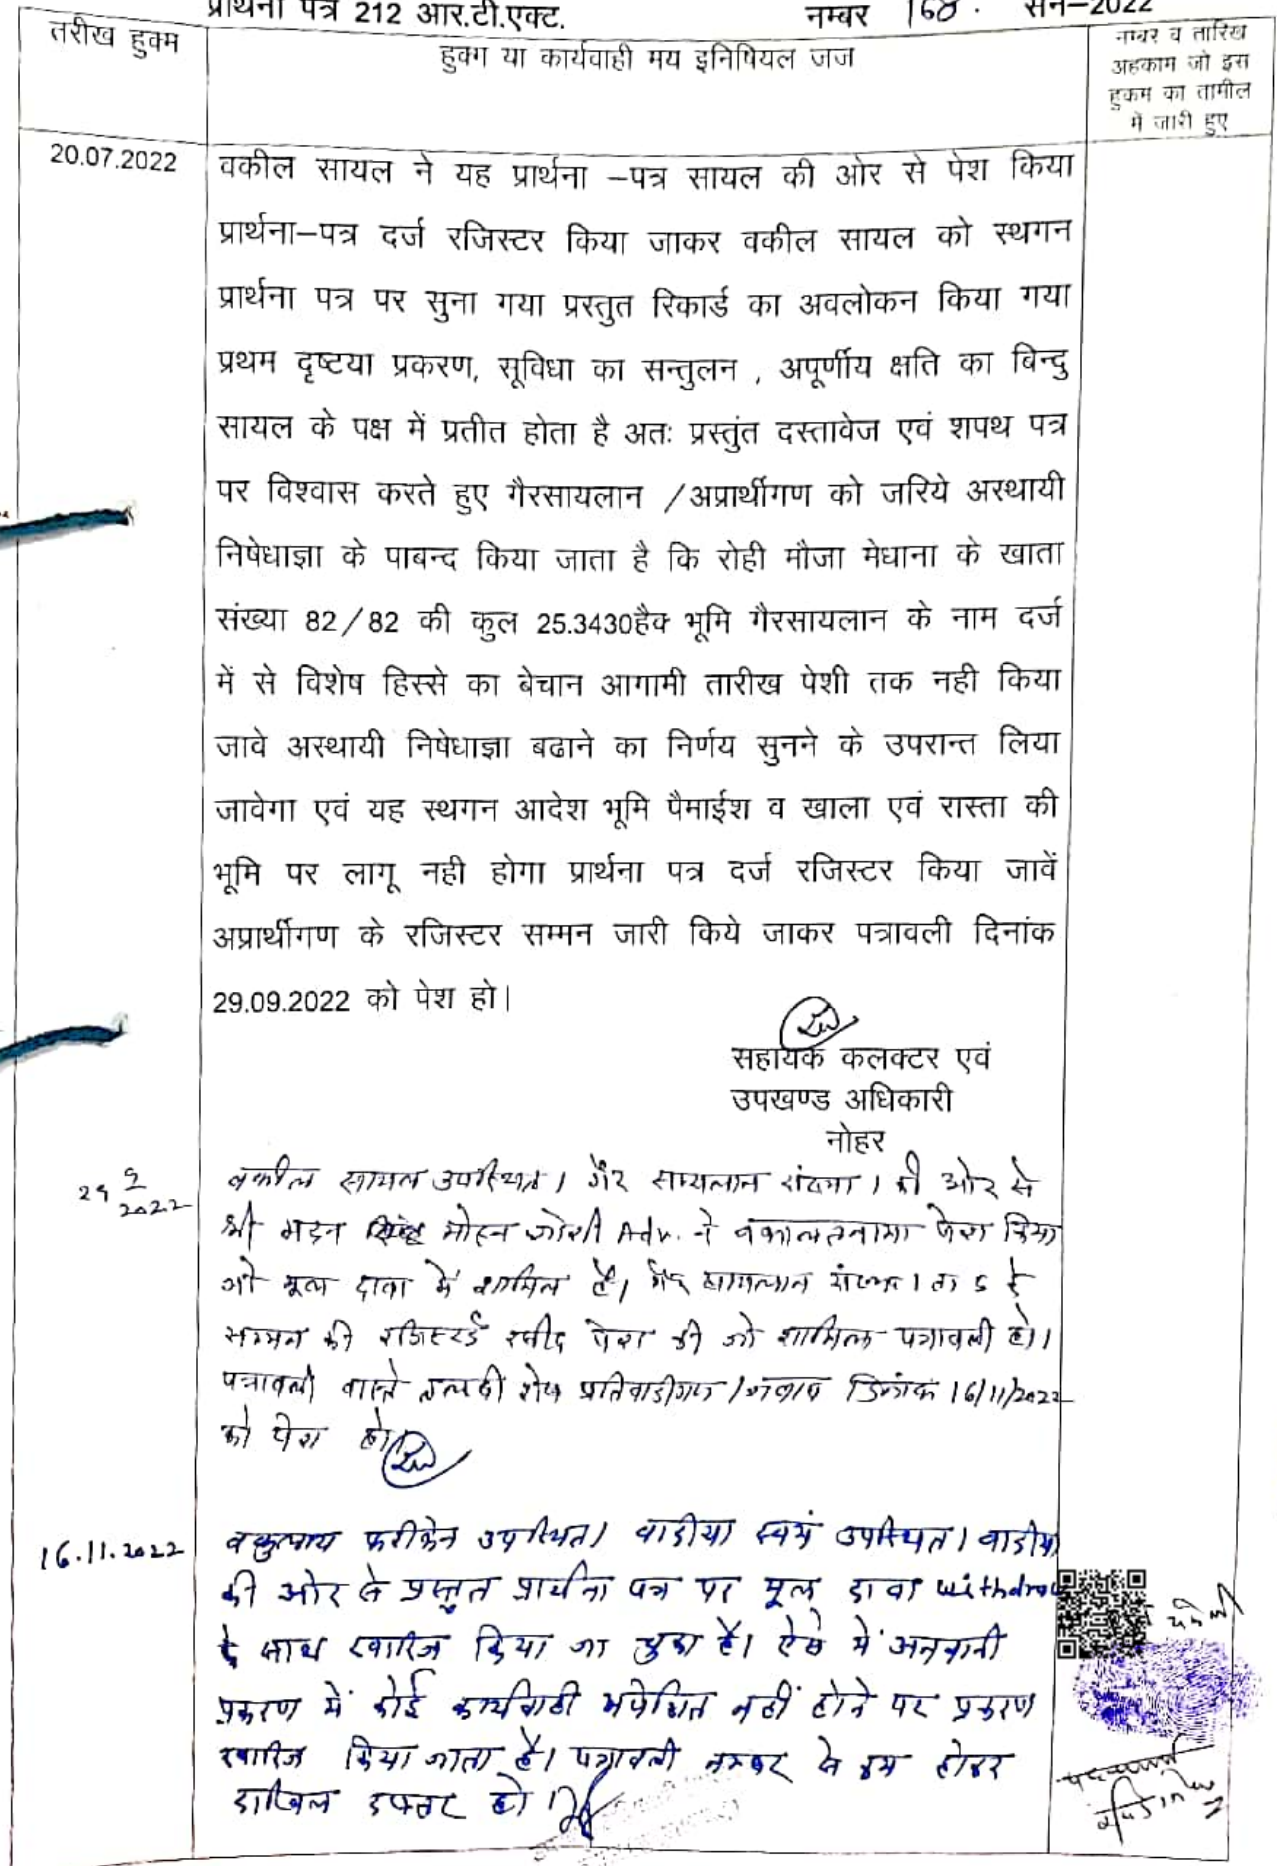 प्रार्थना पत्र 212 आर.टी.एक्ट. नम्बर 168. सन–2022
तरीख हुक्म
हुक्म या कार्यवाही मय इनिषियल जज
नम्बर व तारिख
अहकाम जो इस
हुकम का तामील
में जारी हुए
20.07.2022
वकील सायल ने यह प्रार्थना –पत्र सायल की ओर से पेश किया
प्रार्थना–पत्र दर्ज रजिस्टर किया जाकर वकील सायल को स्थगन
प्रार्थना पत्र पर सुना गया प्रस्तुत रिकार्ड का अवलोकन किया गया
प्रथम दृष्टया प्रकरण, सूविधा का सन्तुलन , अपूर्णीय क्षति का बिन्दु
सायल के पक्ष में प्रतीत होता है अतः प्रस्तुंत दस्तावेज एवं शपथ पत्र
पर विश्वास करते हुए गैरसायलान /अप्रार्थीगण को जरिये अस्थायी
निषेधाज्ञा के पाबन्द किया जाता है कि रोही मौजा मेधाना के खाता
संख्या 82/82 की कुल 25.3430हैक भूमि गैरसायलान के नाम दर्ज
में से विशेष हिस्से का बेचान आगामी तारीख पेशी तक नही किया
जावे अस्थायी निषेधाज्ञा बढाने का निर्णय सुनने के उपरान्त लिया
जावेगा एवं यह स्थगन आदेश भूमि पैमाईश व खाला एवं रास्ता की
भूमि पर लागू नही होगा प्रार्थना पत्र दर्ज रजिस्टर किया जावें
अप्रार्थीगण के रजिस्टर सम्मन जारी किये जाकर पत्रावली दिनांक
29.09.2022 को पेश हो।
सहायक कलक्टर एवं
उपखण्ड अधिकारी
नोहर
29/9/2022
वकील सायल उपस्थित। गैर सायलान संख्या 1 की ओर से
श्री मदन मोहन जोशी Adv. ने वकालतनामा पेश किया
जो मूल दावा में शामिल है। गैर सायलान संख्या 1 ता 5 के
सम्मन की रजिस्टर्ड रसीद पेश की जो शामिल पत्रावली हो।
पत्रावली वास्ते तलबी शेष प्रतिवादीगण / जवाब दिनांक 16/11/2022
को पेश हो।
16.11.2022
वकुलाय फरीकेन उपस्थित। वादीया स्वयं उपस्थित। वादीया
की ओर से प्रस्तुत प्रार्थना पत्र पर मूल दावा withdraw
के साथ खारिज किया जा चुका है। ऐसे में
प्रकरण में कोई कार्यवाही अपेक्षित नहीं होने पर प्रकरण
खारिज किया जाता है। पत्रावली नम्बर से कम होकर
दाखिल दफ्तर हो।